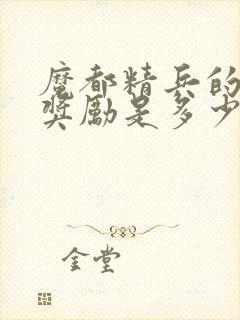 魔都精兵的
奖励是多少
金堂